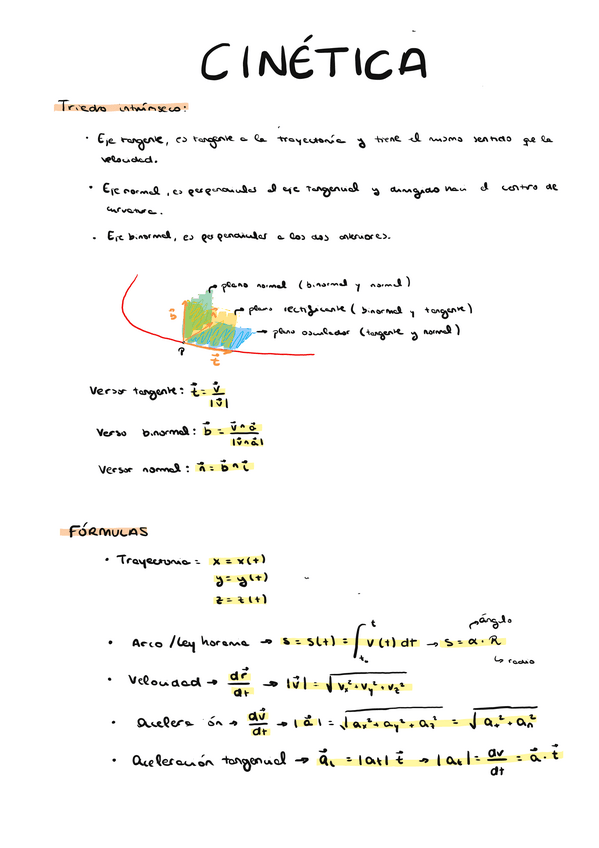 CINÉTICA
Triedro intrínseco:
· Eje tangente, es tangente a la trayectoria y tiene el mismo sentido que la
velocidad.
· Eje normal, es perpendicular al eje tangencial y dirigido hacia el centro de
curvatura.
· Eje binormal, es perpendicular a los dos anteriores.
→ plano normal (binormal y normal)
→ plano rectificante (binormal y tangente)
→ plano osculador (tangente y normal)
b⃗ n⃗
P
t⃗
Versor tangente: t⃗ = v⃗ / |v⃗|
Verso binormal: b⃗ = v⃗ ∧ a⃗ / |v⃗ ∧ a⃗|
Versor normal: n⃗ = b⃗ ∧ t⃗
FÓRMULAS
· Trayectoria = x = x(t)
y = y(t)
z = z(t)
· Arco / Ley horaria → s = s(t) = ∫ₜ₀ᵗ v(t) dt → s = α · R
→ ángulo
↳ radio
· Velocidad → dr⃗/dt → |v⃗| = √(vx² + vy² + vz²)
· Acelera ón → dv⃗/dt → |a⃗| = √(ax² + ay² + az²) = √(at² + an²)
· Aceleración tangencial → a⃗t = |at| t⃗ → |at| = dv/dt = a⃗ · t⃗